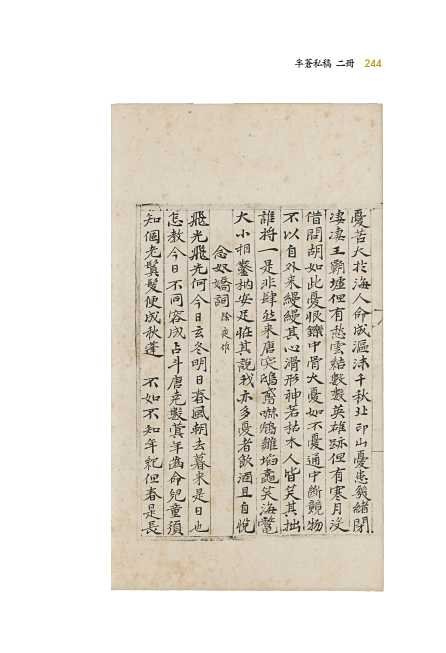 半蒼私稿 二冊 244
憂苦大於海人命咸漚沫千秋北邙山憂患幾緒閉
凄凄王覇墟但有愁雲結數數英雄跡但有寒月沒
借問胡如此憂恨鑠中骨大憂如不憂通中斷競物
不以自外來縵縵其心滑形神若枯木人皆笑其拙
誰將一是非肆然來唐突鴟鳶嚇鵷雛埳鼃笑海鱉
大小相鑿枘安足恠其說我亦多憂者飲酒且自悅
念奴嬌詞 除夜作
飛光飛光何今日玄冬明日春風朝去暮來是日也
怎教今日不同容成占斗唐堯數蓂年爲命兒童須
知個老鬢髮便成秋蓬 不如不知年紀但春是長